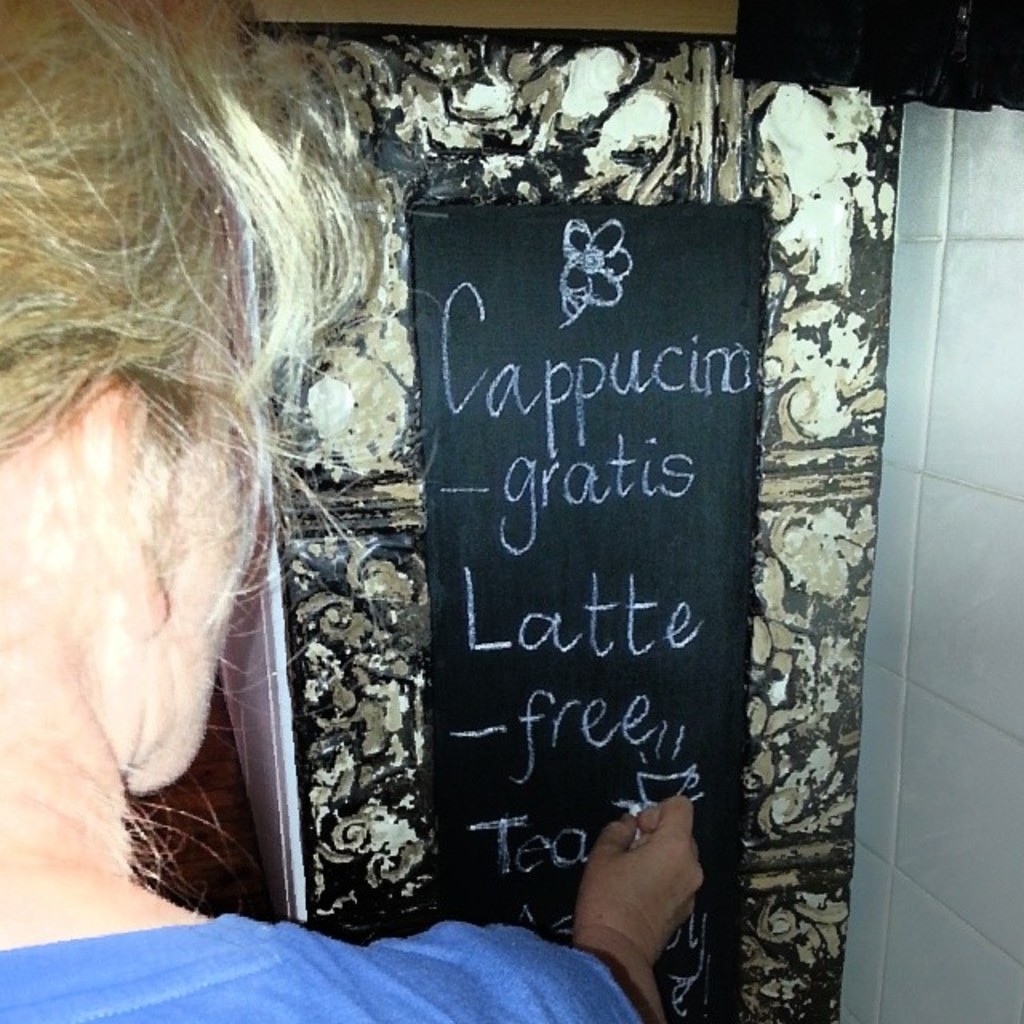 Cappucino
- gratis
Latte
- free
Tea